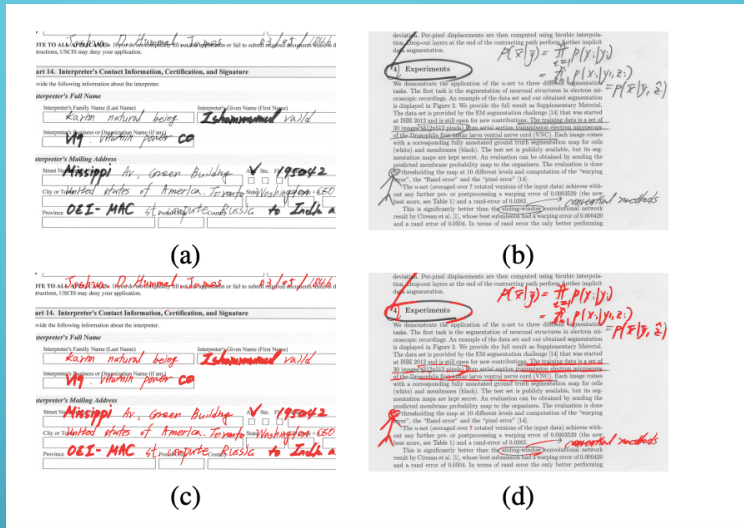 Joshua D. Hummel James 03/05/1846
NOTE TO ALL APPLICANTS: If you do not completely fill out this application or fail to submit required documents listed in the
Instructions, USCIS may deny your application.
art 14. Interpreter's Contact Information, Certification, and Signature
wide the following information about the interpreter.
nterpreter's Full Name
Interpreter's Family Name (Last Name) Interpreter's Given Name (First Name)
natural being valid
Interpreter's Business or Organization Name (if any)
V19. Vitamin power co
nterpreter's Mailing Address
Street Missippi Av, Green Building 195042
City or United states of America, Toronto Washington - C50
Province O&I- MAC st compute Russia to India a
(a)
deviation. Per-pixel displacements are then computed using bicubic interpola-
tion. Drop-out layers at the end of the contracting path perform further implicit
data augmentation.
4 Experiments
We demonstrate the application of the u-net to three different segmentation
tasks. The first task is the segmentation of neuronal structures in electron mi-
croscopic recordings. An example of the data set and our obtained segmentation
is displayed in Figure 2. We provide the full result as Supplementary Material.
The data set is provided by the EM segmentation challenge [14] that was started
at ISBI 2012 and is still open for new contributions. The training data is a set of
30 images (512x512 pixels) from serial section transmission electron microscopy
of the Drosophila first instar larva ventral nerve cord (VNC). Each image comes
with a corresponding fully annotated ground truth segmentation map for cells
(white) and membranes (black). The test set is publicly available, but its seg-
mentation maps are kept secret. An evaluation can be obtained by sending the
predicted membrane probability map to the organizers. The evaluation is done
thresholding the map at 10 different levels and computation of the "warping
error", the "Rand error" and the "pixel error" [14].
The u-net (averaged over 7 rotated versions of the input data) achieves with-
out any further pre- or postprocessing a warping error of 0.0003529 (the new
best score, see Table 1) and a rand-error of 0.0382. conventional methods
This is significantly better than the sliding-window convolutional network
result by Ciresan et al. [1], whose best submission had a warping error of 0.000420
and a rand error of 0.0504. In terms of rand error the only better performing
(b)
Joshua D. Hummel James 03/05/1846
NOTE TO ALL APPLICANTS: If you do not completely fill out this application or fail to submit required documents listed in the
Instructions, USCIS may deny your application.
art 14. Interpreter's Contact Information, Certification, and Signature
wide the following information about the interpreter.
nterpreter's Full Name
Interpreter's Family Name (Last Name) Interpreter's Given Name (First Name)
natural being valid
Interpreter's Business or Organization Name (if any)
V19. Vitamin power co
nterpreter's Mailing Address
Street Missippi Av, Green Building 195042
City or United states of America, Toronto Washington - C50
Province O&I- MAC st compute Russia to India a
(c)
deviation. Per-pixel displacements are then computed using bicubic interpola-
tion. Drop-out layers at the end of the contracting path perform further implicit
data augmentation.
4 Experiments
We demonstrate the application of the u-net to three different segmentation
tasks. The first task is the segmentation of neuronal structures in electron mi-
croscopic recordings. An example of the data set and our obtained segmentation
is displayed in Figure 2. We provide the full result as Supplementary Material.
The data set is provided by the EM segmentation challenge [14] that was started
at ISBI 2012 and is still open for new contributions. The training data is a set of
30 images (512x512 pixels) from serial section transmission electron microscopy
of the Drosophila first instar larva ventral nerve cord (VNC). Each image comes
with a corresponding fully annotated ground truth segmentation map for cells
(white) and membranes (black). The test set is publicly available, but its seg-
mentation maps are kept secret. An evaluation can be obtained by sending the
predicted membrane probability map to the organizers. The evaluation is done
thresholding the map at 10 different levels and computation of the "warping
error", the "Rand error" and the "pixel error" [14].
The u-net (averaged over 7 rotated versions of the input data) achieves with-
out any further pre- or postprocessing a warping error of 0.0003529 (the new
best score, see Table 1) and a rand-error of 0.0382. conventional methods
This is significantly better than the sliding-window convolutional network
result by Ciresan et al. [1], whose best submission had a warping error of 0.000420
and a rand error of 0.0504. In terms of rand error the only better performing
(d)